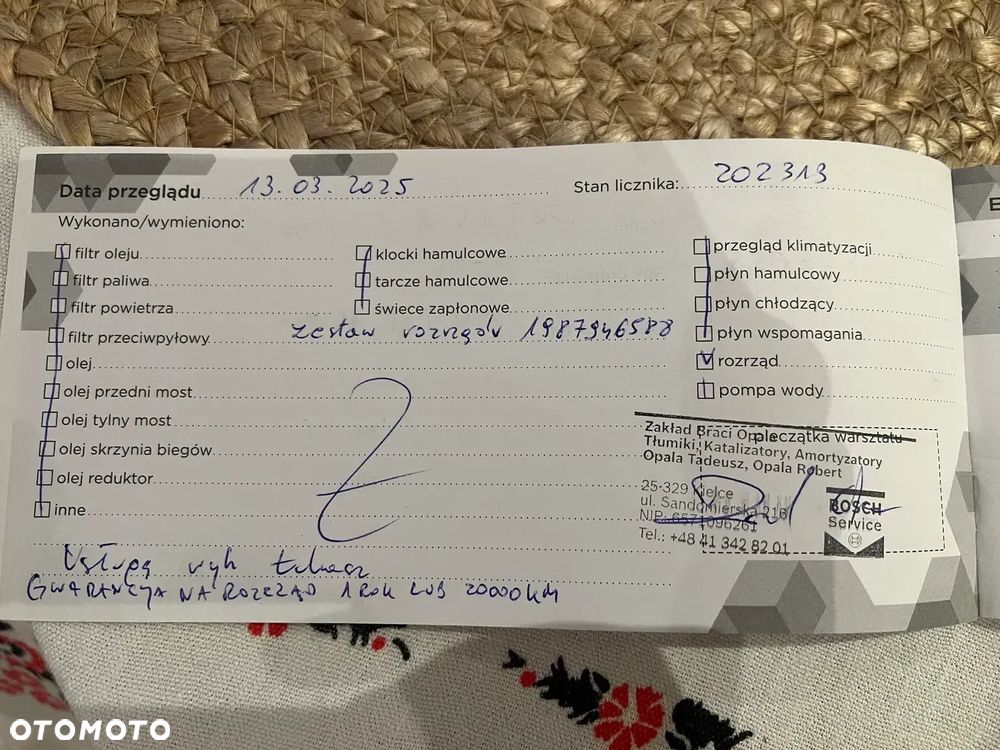 Data przeglądu 13.03.2025 Stan licznika: 202313
Wykonano/wymieniono:
filtr oleju klocki hamulcowe przegląd klimatyzacji
filtr paliwa tarcze hamulcowe płyn hamulcowy
filtr powietrza świece zapłonowe płyn chłodzący
filtr przeciwpyłowy zestaw rozrządu 1987946588 płyn wspomagania
olej rozrząd
olej przedni most pompa wody
olej tylny most
olej skrzynia biegów
olej reduktor
inne
pieczątka warsztatu
Zakład Braci Opala
Tłumiki, Katalizatory, Amortyzatory
Opala Tadeusz, Opala Robert
25-329 Kielce
ul. Sandomierska 216
NIP: 6571096261
Tel.: +48 41 342 82 01
BOSCH
Service
GWARANCYJA NA ROZRZĄD 1 ROK LUB 20000 km
E
OTOMOTO